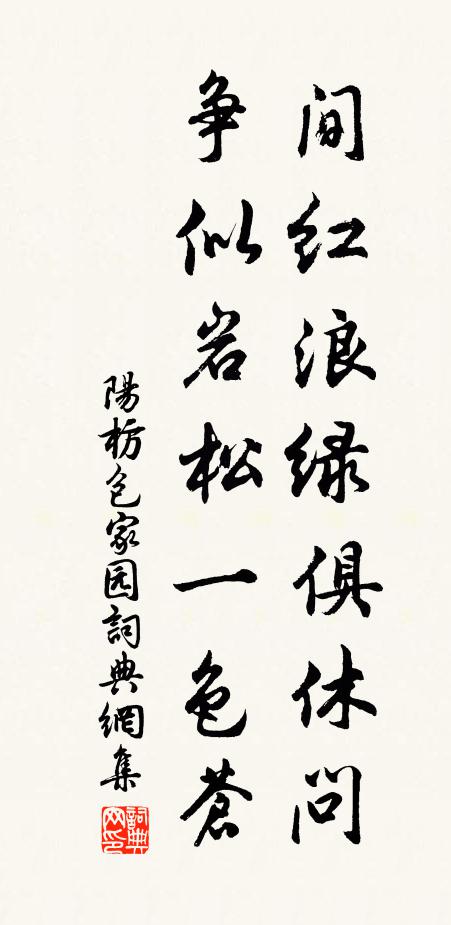 间红浪绿俱休问
争似岩松一色苍
陽枥色家园詞典網集
詞典网印